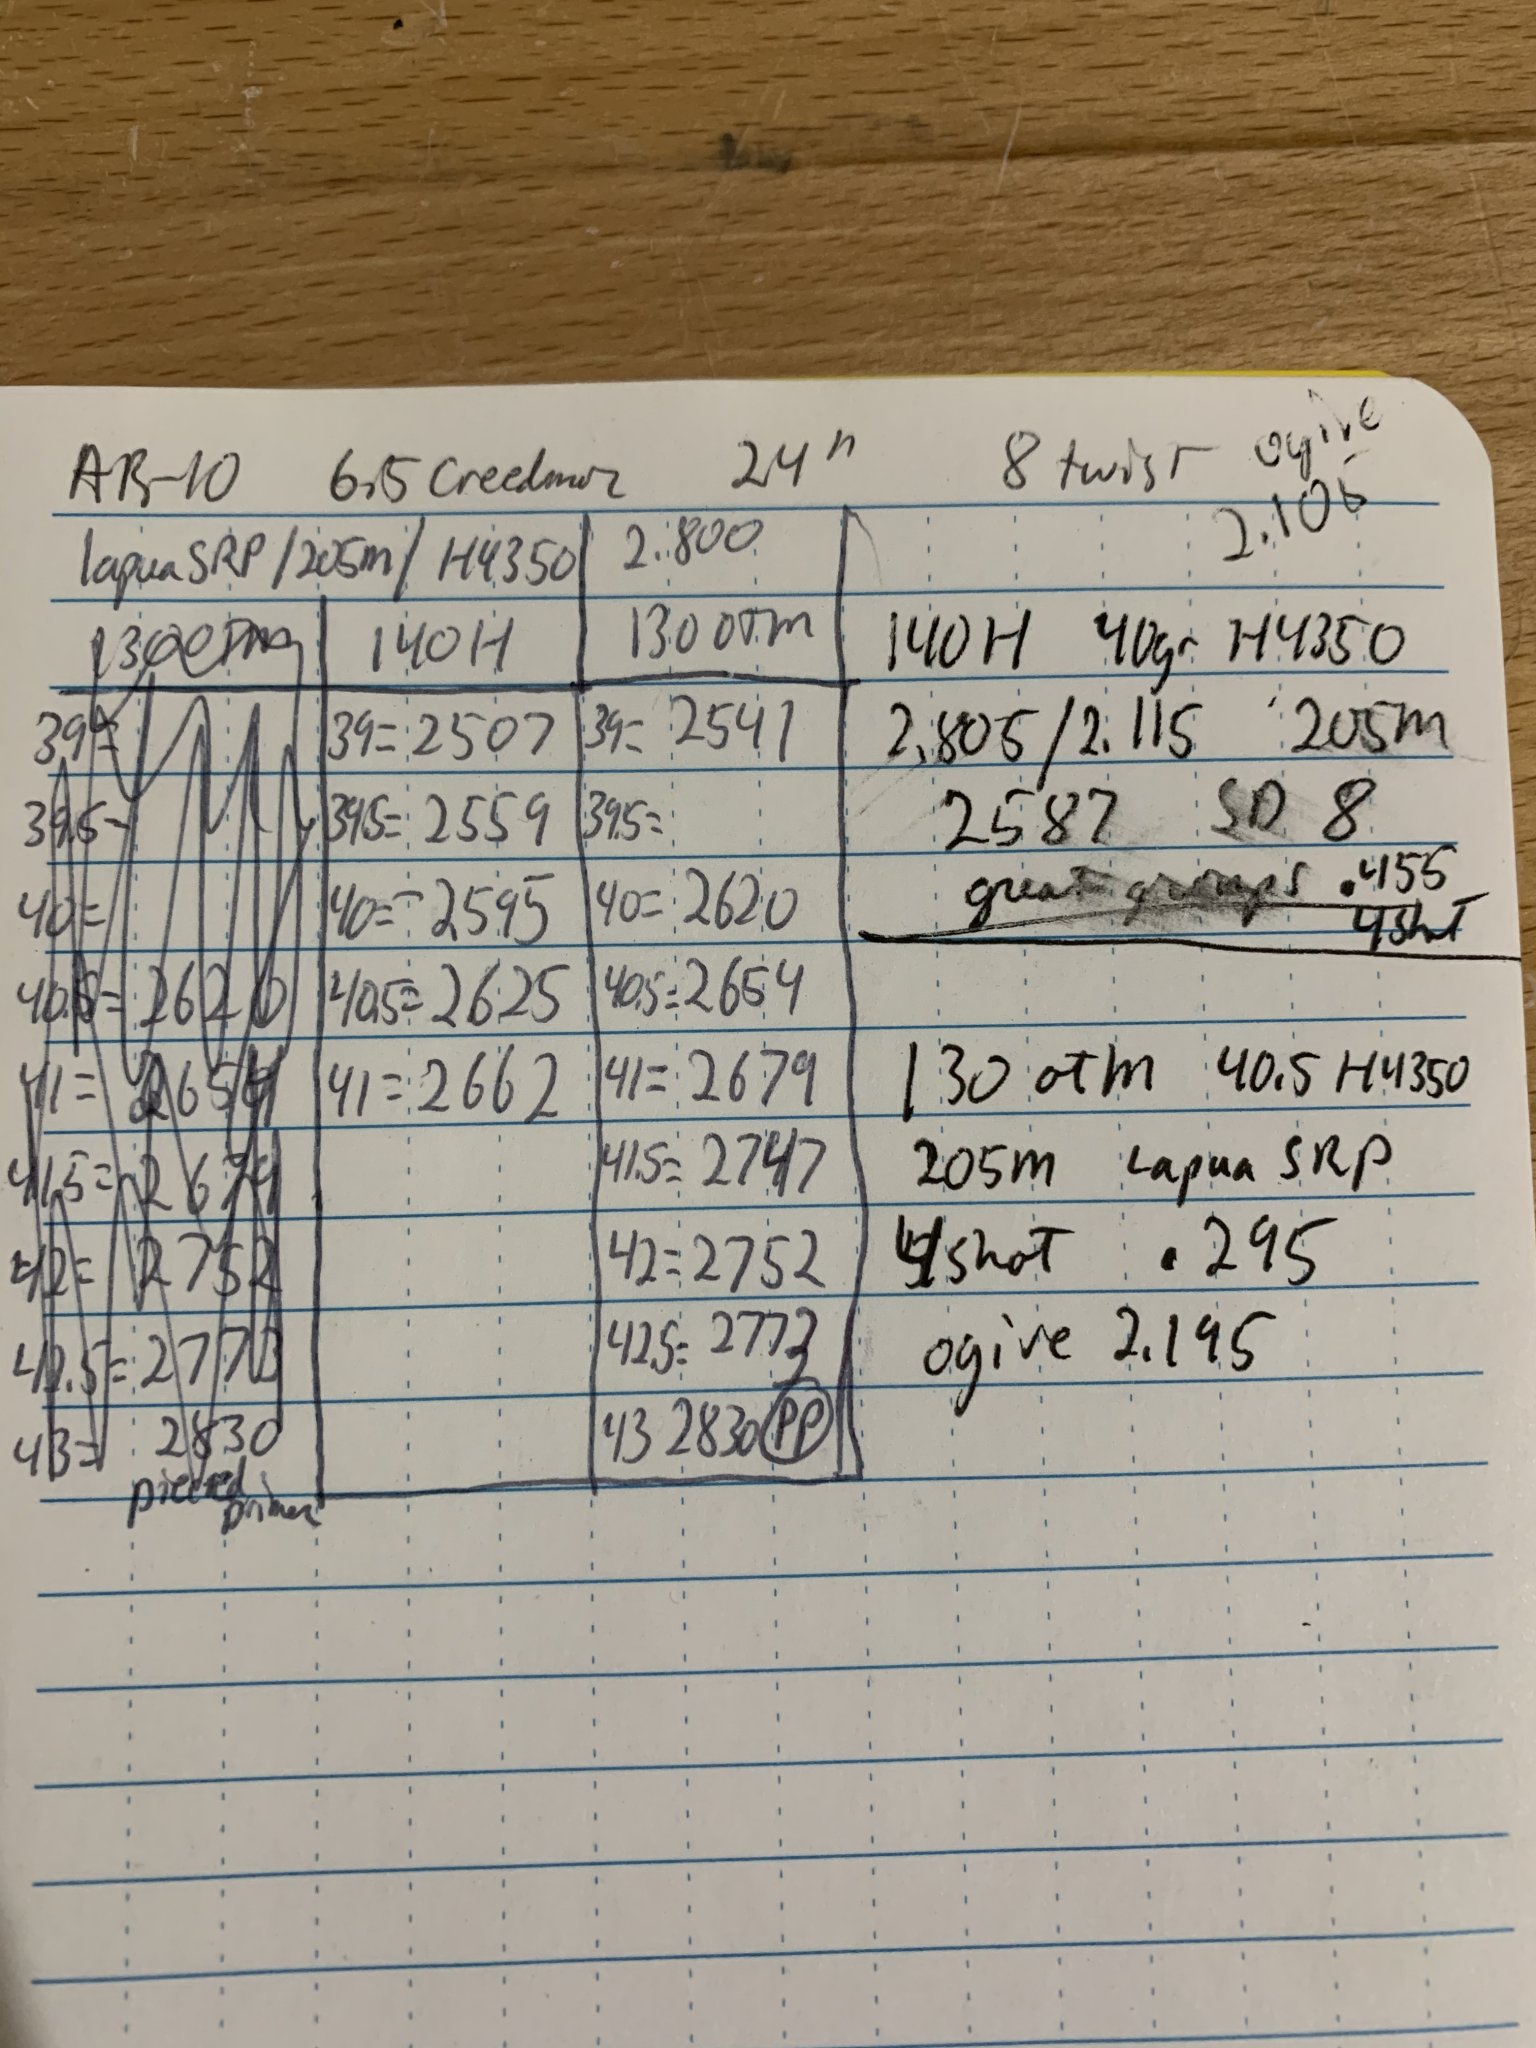 AR-10 6.5 Creedmor 24" 8 twist ogive
2.105
lapua SRP / 205m / H4350 2.800
130 OTM 140H 130 OTM 140H 40gr H4350
39= 39= 2507 39= 2541 2.805 / 2.115 205m
39.5= 39.5= 2559 39.5= 2587 SD 8
40= 40= 2595 40= 2620 great groups .455
4 shot
40.5= 2620 40.5= 2625 40.5= 2654
41= 2654 41= 2662 41= 2679 130 OTM 40.5 H4350
41.5= 2679 41.5= 2747 205m Lapua SRP
42= 2752 42= 2752 4 shot .295
42.5= 2773 42.5= 2773 ogive 2.195
43= 2830 43 2830 PP
pierced primer